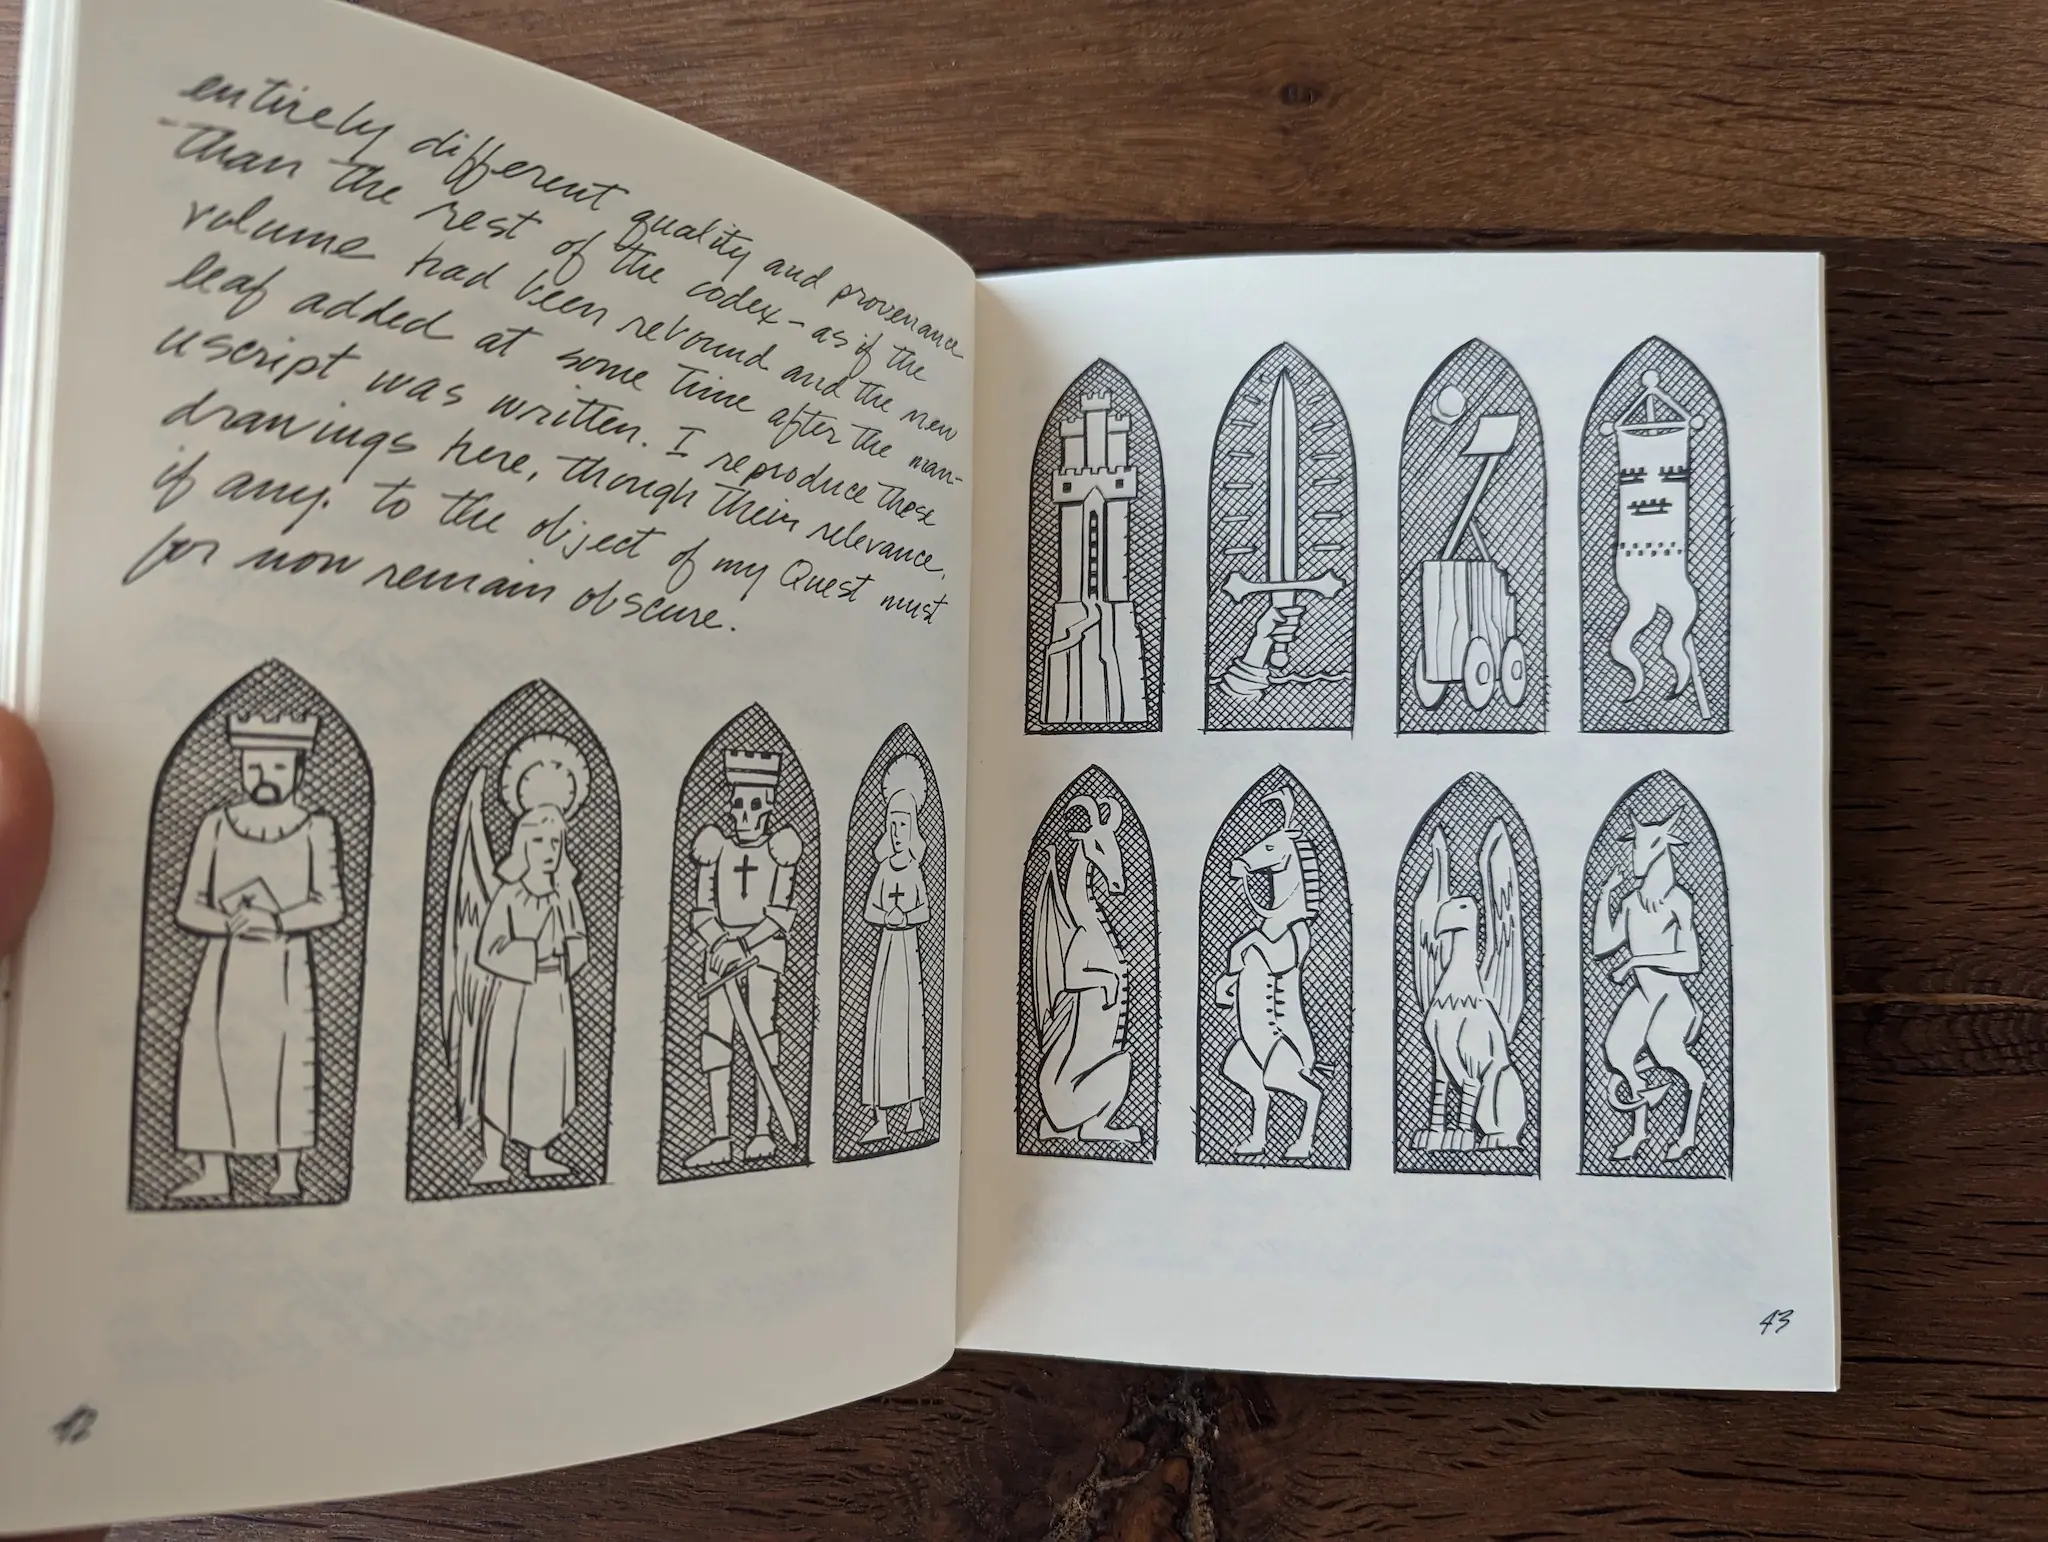 entirely different quality and provenance
than the rest of the codex – as if the
volume had been rebound and the new
leaf added at some time after the man-
uscript was written. I reproduce these
drawings here, though their relevance,
if any, to the object of my Quest must
for now remain obscure.
42
43